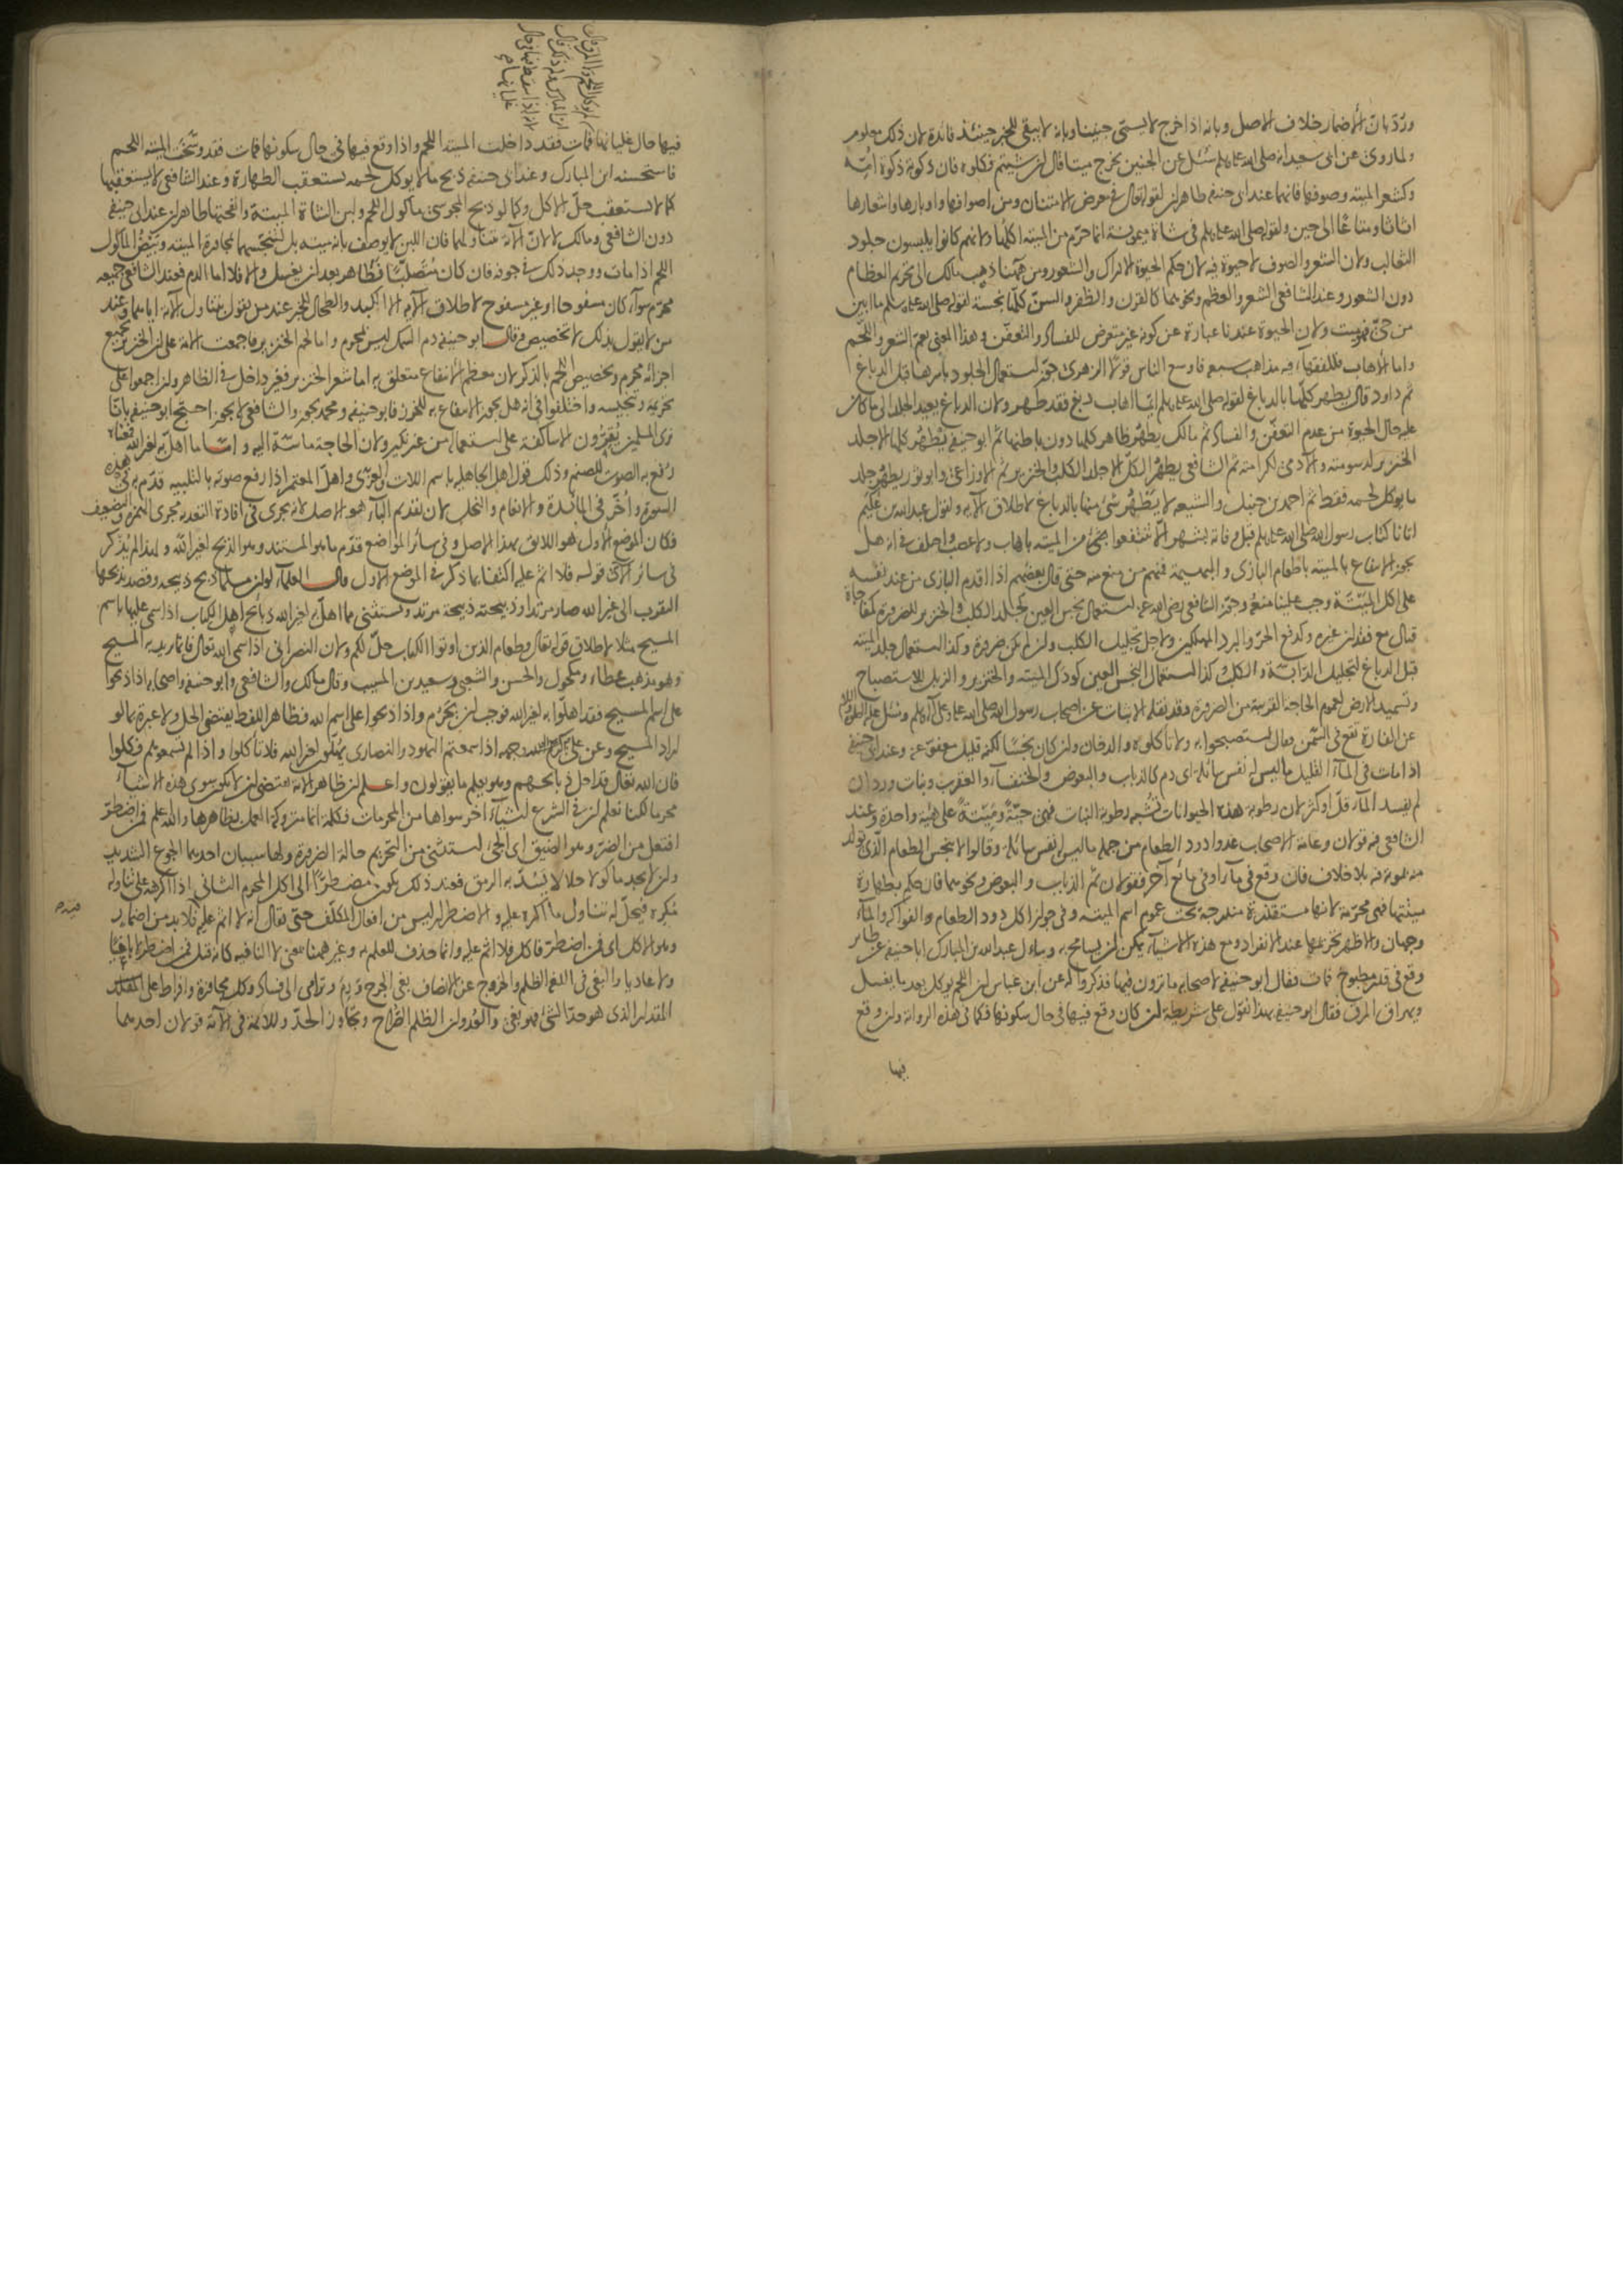 ورد بان الاضمار خلاف الاصل وبانه اذا خرج لا يسمى جنينا وبانه لا يبقى للخبر حينئذ فائدة لان ذلك معلوم
ولما روى عن ابى سعيد انه صلى الله عليه وسلم سئل عن الجنين يخرج ميتا قال ان شيتم فكلوه فان ذكوته ذكوة امه
وكشعر الميته وصوفها فانهما عند ابى حنيفه طاهران لقوله تعالى فى معرض الامتنان ومن اصوافها واوبارها واشعارها
اثاثا ومتاعا الى حين ولقوله صلى الله عليه وسلم فى شاة ميمونة انما حرم من الميته اكلها ولانهم كانوا يلبسون جلود
الثعالب ولان الشعر والصوف لا حيوة فيه لان حكم الحيوة الادراك والشعور ومن ههنا ذهب مالك الى تحريم العظام
دون الشعور وعند الشافعى الشعر والعظم ونحوهما كالقرن والظفر والسن كلها نجسة لقوله صلى الله عليه وسلم ما ابين
من حى فهو ميت ولان الحيوة عندنا عبارة عن كونه غير متعرض للفساد والتعفن وهذا المعنى يعم الشعر واللحم
واما الاهاب فللفقهاء فيه مذاهب سبعه فاوسع الناس قولا الزهرى جوز استعمال الجلود باسرها قبل الدباغ
ثم داود قال يطهر كلها بالدباغ لقوله صلى الله عليه وسلم ايما اهاب دبغ فقد طهر ولان الدباغ يعيد الجلد الى ما كان
عليه حال الحيوة من عدم التعفن والفساد ثم مالك يطهر ظاهر كلها دون باطنها ثم ابو حنيفه يطهر كلها الا جلد
الخنزير لدسومته والآدمى لكرامته ثم الشافعى يطهر الكل الا جلد الكلب والخنزير ثم الاوزاعى وابو ثور يطهر جلد
ما يوكل لحمه فقط ثم احمد بن حنبل والشيعه لا يطهر شئ منها بالدباغ لاطلاق الآيه ولقول عبد الله بن عكيم
اتانا كتاب رسول الله صلى الله عليه وسلم قبل وفاته بشهر الا تنتفعوا من الميته باهاب ولا عصب واختلف فى انه هل
يجوز الانتفاع بالميته باطعام البازى والبهيمة فمنهم من منع منه حتى قال بعضهم اذا اقدم البازى من عند نفسه
على اكل الميتة وجب علينا منعه وجوز الشافعى رضى الله عنه استعمال نجس العين كجلد الكلب والخنزير للضرورة كمفاجاة
قتال مع فقدان غيره وكدفع الحر والبرد المهلكين ولاجل تجليل الكلب وان لم يكن ضرورة وكذا استعمال جلد الميته
قبل الدباغ لتجليل الدابة والكلب وكذا استعمال النجس العين كودك الميته والخنزير والزبل للاستصباح
وتسميد الارض لعموم الحاجة القريبة من الضرورة وقد نقله الاثبات عن اصحاب رسول الله صلى الله عليه وعلى آله وسلم وسئل عليه الصلوة والسلام
عن الفارة تقع فى السمن فقال استصبحوا به ولا تأكلوه والدخان وان كان نجسا لكنه قليل معفو عنه وعند ابى حنيفه
اذا مات فى الماء القليل ما ليس له نفس سائله اى دم كالذباب والبعوض والخنفساء والعقرب وبنات وردان
لم يفسد الماء قل او كثر لان رطوبة هذه الحيوانات تشبه رطوبة النبات فهى حية وميتة على هيئة واحدة وعند
الشافعى فيه قولان وعامة الاصحاب عدوا دود الطعام من جملة ما ليس له نفس سائله وقالوا لا ينجس الطعام الذى تولد
منه بموته فيه بلا خلاف فان وقع فى ماء او فى مائع آخر فقولان ثم الذباب والبعوض ونحوهما فان حكم بطهارة
ميتتها فهى محرمة لانها مستقذرة مندرجة تحت عموم اسم الميته وفى جواز اكل دود الطعام والفواكه والماء
وجهان والاظهر تحريمها عند الانفراد ومع هذه الاشياء يمكن ان يسامح به وسأل عبد الله بن المبارك ابا حنيفه عن طائر
وقع فى قدر مطبوخ فمات فقال ابو حنيفه لاصحابه ما ترون فيها فذكروا له عن ابن عباس ان اللحم يوكل بعد ما يغسل
ويهراق المرق فقال ابو حنيفه بهذا نقول على شريطة ان كان وقع فيها فى حال سكونها فكما فى هذه الرواية وان وقع
فيها
فيها حال غليانها فمات فقد داخلت الميتة اللحم واذا وقع فيها فى حال سكونها فمات فقد وسخت الميته اللحم
فاستحسنه ابن المبارك وعند ابى حنيفه ذبح ما لا يوكل لحمه يستعقب الطهارة وعند الشافعى لا يستعقبها
كما لا يستعقب حل الاكل وكما لو ذبح المجوسى ماكول اللحم ولبن الشاة الميتة وانفحتها طاهران عند ابى حنيفه
دون الشافعى ومالك لا لان الآية متناوله لهما فان اللبن لا يوصف بانه ميته بل لتنجسهما بمجاورة الميته وبيض الماكول
اللحم اذا مات ووجد ذلك فى جوفه فان كان متصلبا فطاهر بعد ان يغسل والا فلا اما الدم فعند الشافعى جميعه
محرم سواء كان مسفوحا او غير مسفوح لاطلاق الآيه الا الكبد والطحال للخبر عند من يقول بتناول الآية اياهما وعند
من لا يقول بذلك لا تخصيص وقال ابو حنيفه دم السمك ليس بمحرم واما لحم الخنزير فاجمعت الامة على ان الخنزير بجميع
اجزائه محرم وتخصيص اللحم بالذكر لان معظم الانتفاع متعلق به اما شعر الخنزير فغير داخل فى الظاهر وان اجمعوا على
تحريمه وتنجيسه واختلفوا فى انه هل يجوز الانتفاع به للخرز فابو حنيفه ومحمد يجوز والشافعى لا يجوز احتج ابو حنيفه بانا
نرى المسلمين يقرون الاساكفة على استعماله من غير نكير ولان الحاجة ماسة اليه واما ما اهل به لغير الله فمعناه
رفع به الصوت للصنم وذلك قول اهل الجاهليه باسم اللات والعزى واهل المعتمر اذا رفع صوته بالتلبيه قدم به فى هذه
السورة واخر فى المائدة والانعام والنحل لان تقديم الباء هو الاصل لانه يجرى فى افادة التعدية مجرى الهمزة والتضعيف
فكان الموضع الاول هو اللائق بهذا الاصل وفى سائر المواضع قدم ما هو المستند وهو الذبح لغير الله ولهذا لم يذكر
فى سائر الآى قوله فلا اثم عليه اكتفاء بما ذكر فى الموضع الاول قال العلماء لو ان مسلما ذبح ذبيحه وقصد بذبحها
التقرب الى غير الله صار مرتدا وذبيحته ذبيحة مرتد ويستثنى مما اهل به لغير الله ذبائح اهل الكتاب اذا سمى عليها باسم
المسيح مثلا لاطلاق قوله تعالى وطعام الذين اوتوا الكتاب حل لكم ولان النصرانى اذا سمى الله تعالى فانما يريد به المسيح
وهو مذهب عطاء ومكحول والحسن والشعبى وسعيد بن المسيب وقال مالك والشافعى وابو حنيفه واصحابه اذا ذبحوا
على اسم المسيح فقد اهلوا به لغير الله فوجب ان يحرم واذا ذبحوا على اسم الله فظاهر اللفظ يقتضى الحل ولا عبرة بما لو
اراد المسيح وعن على كرم الله وجهه اذا سمعتم اليهود والنصارى يهلون لغير الله فلا تأكلوا واذا لم تسمعوهم فكلوا
فان الله تعالى قد احل ذبائحهم وهو يعلم ما يقولون واعلم ان ظاهر الآية يقتضى ان لا يكون سوى هذه الاشياء
محرما لكنا نعلم ان فى الشرع اشياء اخر سواها من المحرمات فكلمة انما متروكة العمل بظاهرها والله اعلم فمن اضطر
افتعل من الضر وهو الضيق اى الجئ استثنى من التحريم حالة الضرورة ولها سببان احدهما الجوع الشديد
وان لا يجد ماكولا حلالا يسد به الرمق فعند ذلك يكون مضطرا الى اكل المحرم الثانى اذا اكرهه على تناوله
مكره فيحل له تناول ما اكره عليه والاضطرار ليس من افعال المكلف حتى يقال انه لا اثم عليه فلا بد من اضمار
وهو الاكل اى فمن اضطر فاكل فلا اثم عليه وانما حذف للعلم به وغير ههنا بمعنى لا النافيه كانه قيل فمن اضطر لا باغيا
ولا عاديا والبغى فى اللغه الظلم والخروج عن الانصاف بغى الجرح ورم وترامى الى فساد وكل مجاوزة وافراط على
المقدار الذى هو حد الشئ فهو بغى والعدوان الظلم الصراح وتجاوز الحد وللائمة فى الآية قولان احدهما